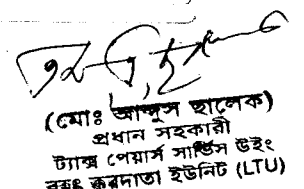 (মোঃ আব্দুস ছালেক)
প্রধান সহকারী
ট্যাক্স পেয়ার্স সার্ভিস উইং
বৃহৎ করদাতা ইউনিট (LTU)